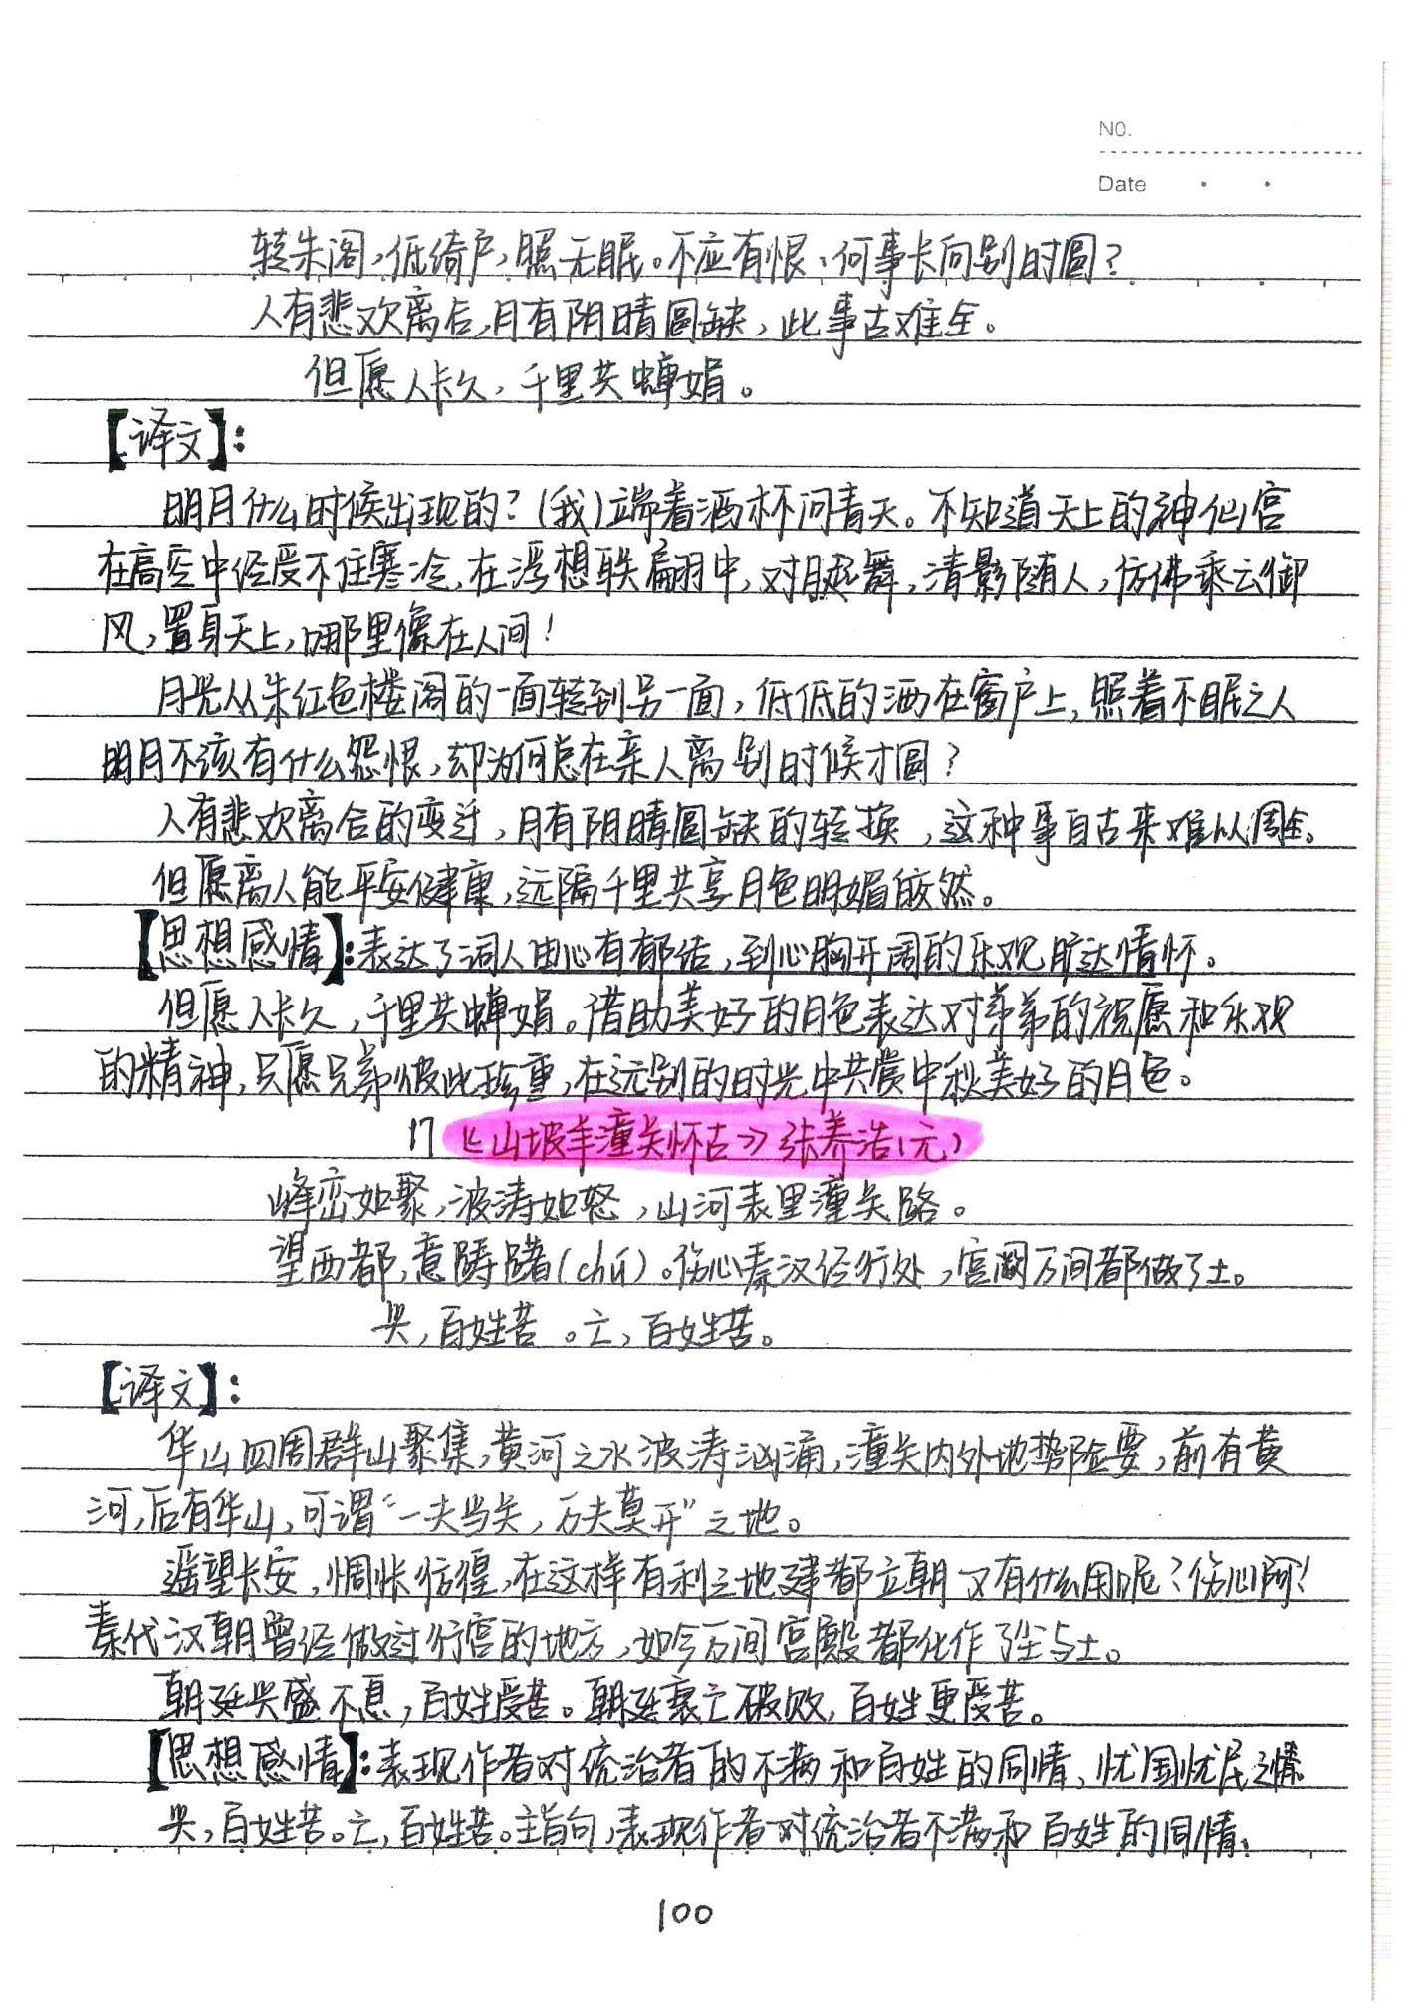 NO.
Date
转朱阁,低绮户,照无眠。不应有恨、何事长向别时圆?
人有悲欢离合,月有阴晴圆缺,此事古难全。
但愿人长久,千里共婵娟。
【译文】:
明月什么时候出现的?(我)端着酒杯问青天。不知道天上的神仙宫
在高空中经受不住寒冷,在浮想联翩中,对月起舞,清影随人,仿佛乘云御
风,置身天上,哪里像在人间!
月光从朱红色楼阁的一面转到另一面,低低的洒在窗户上,照着不眠之人
明月不该有什么怨恨,却为何总在亲人离别时候才圆?
人有悲欢离合的变迁,月有阴晴圆缺的转换,这种事自古来难以周全。
但愿离人能平安健康,远隔千里共享月色明媚皎然。
【思想感情】:表达了词人由心有郁结,到心胸开阔的乐观旷达情怀。
但愿人长久,千里共婵娟。借助美好的月色表达对弟弟的祝愿和乐观
的精神,只愿兄弟彼此珍重,在远别的时光中共赏中秋美好的月色。
17《山坡羊潼关怀古》张养浩(元)
峰峦如聚,波涛如怒,山河表里潼关路。
望西都,意踌躇(chú)。伤心秦汉经行处,宫阙万间都做了土。
兴,百姓苦。亡,百姓苦。
【译文】:
华山四周群山聚集,黄河之水波涛汹涌,潼关内外地势险要,前有黄
河,后有华山,可谓“一夫当关,万夫莫开”之地。
遥望长安,惆怅彷徨,在这样有利之地建都立朝又有什么用呢?伤心阿!
秦代汉朝曾经做过行宫的地方,如今万间宫殿都化作了尘与土。
朝廷兴盛不息,百姓受苦。朝廷衰亡破败,百姓更受苦。
【思想感情】:表现作者对统治者的不满和百姓的同情,忧国忧民之情。
兴,百姓苦。亡,百姓苦。主旨句,表现作者对统治者不满和百姓的同情。
100